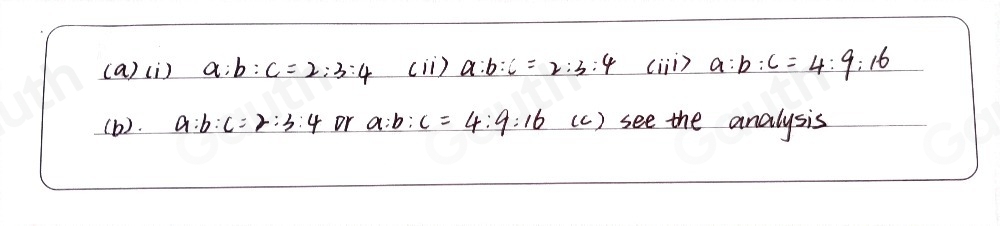 (a)(i) a:b:c=2:3:4 (ii) a:b:c=2:3:4 (iii) a:b:c=4:9:16
(b). a:b:c=2:3:4 or a:b:c=4:9:16 (c) see the analysis